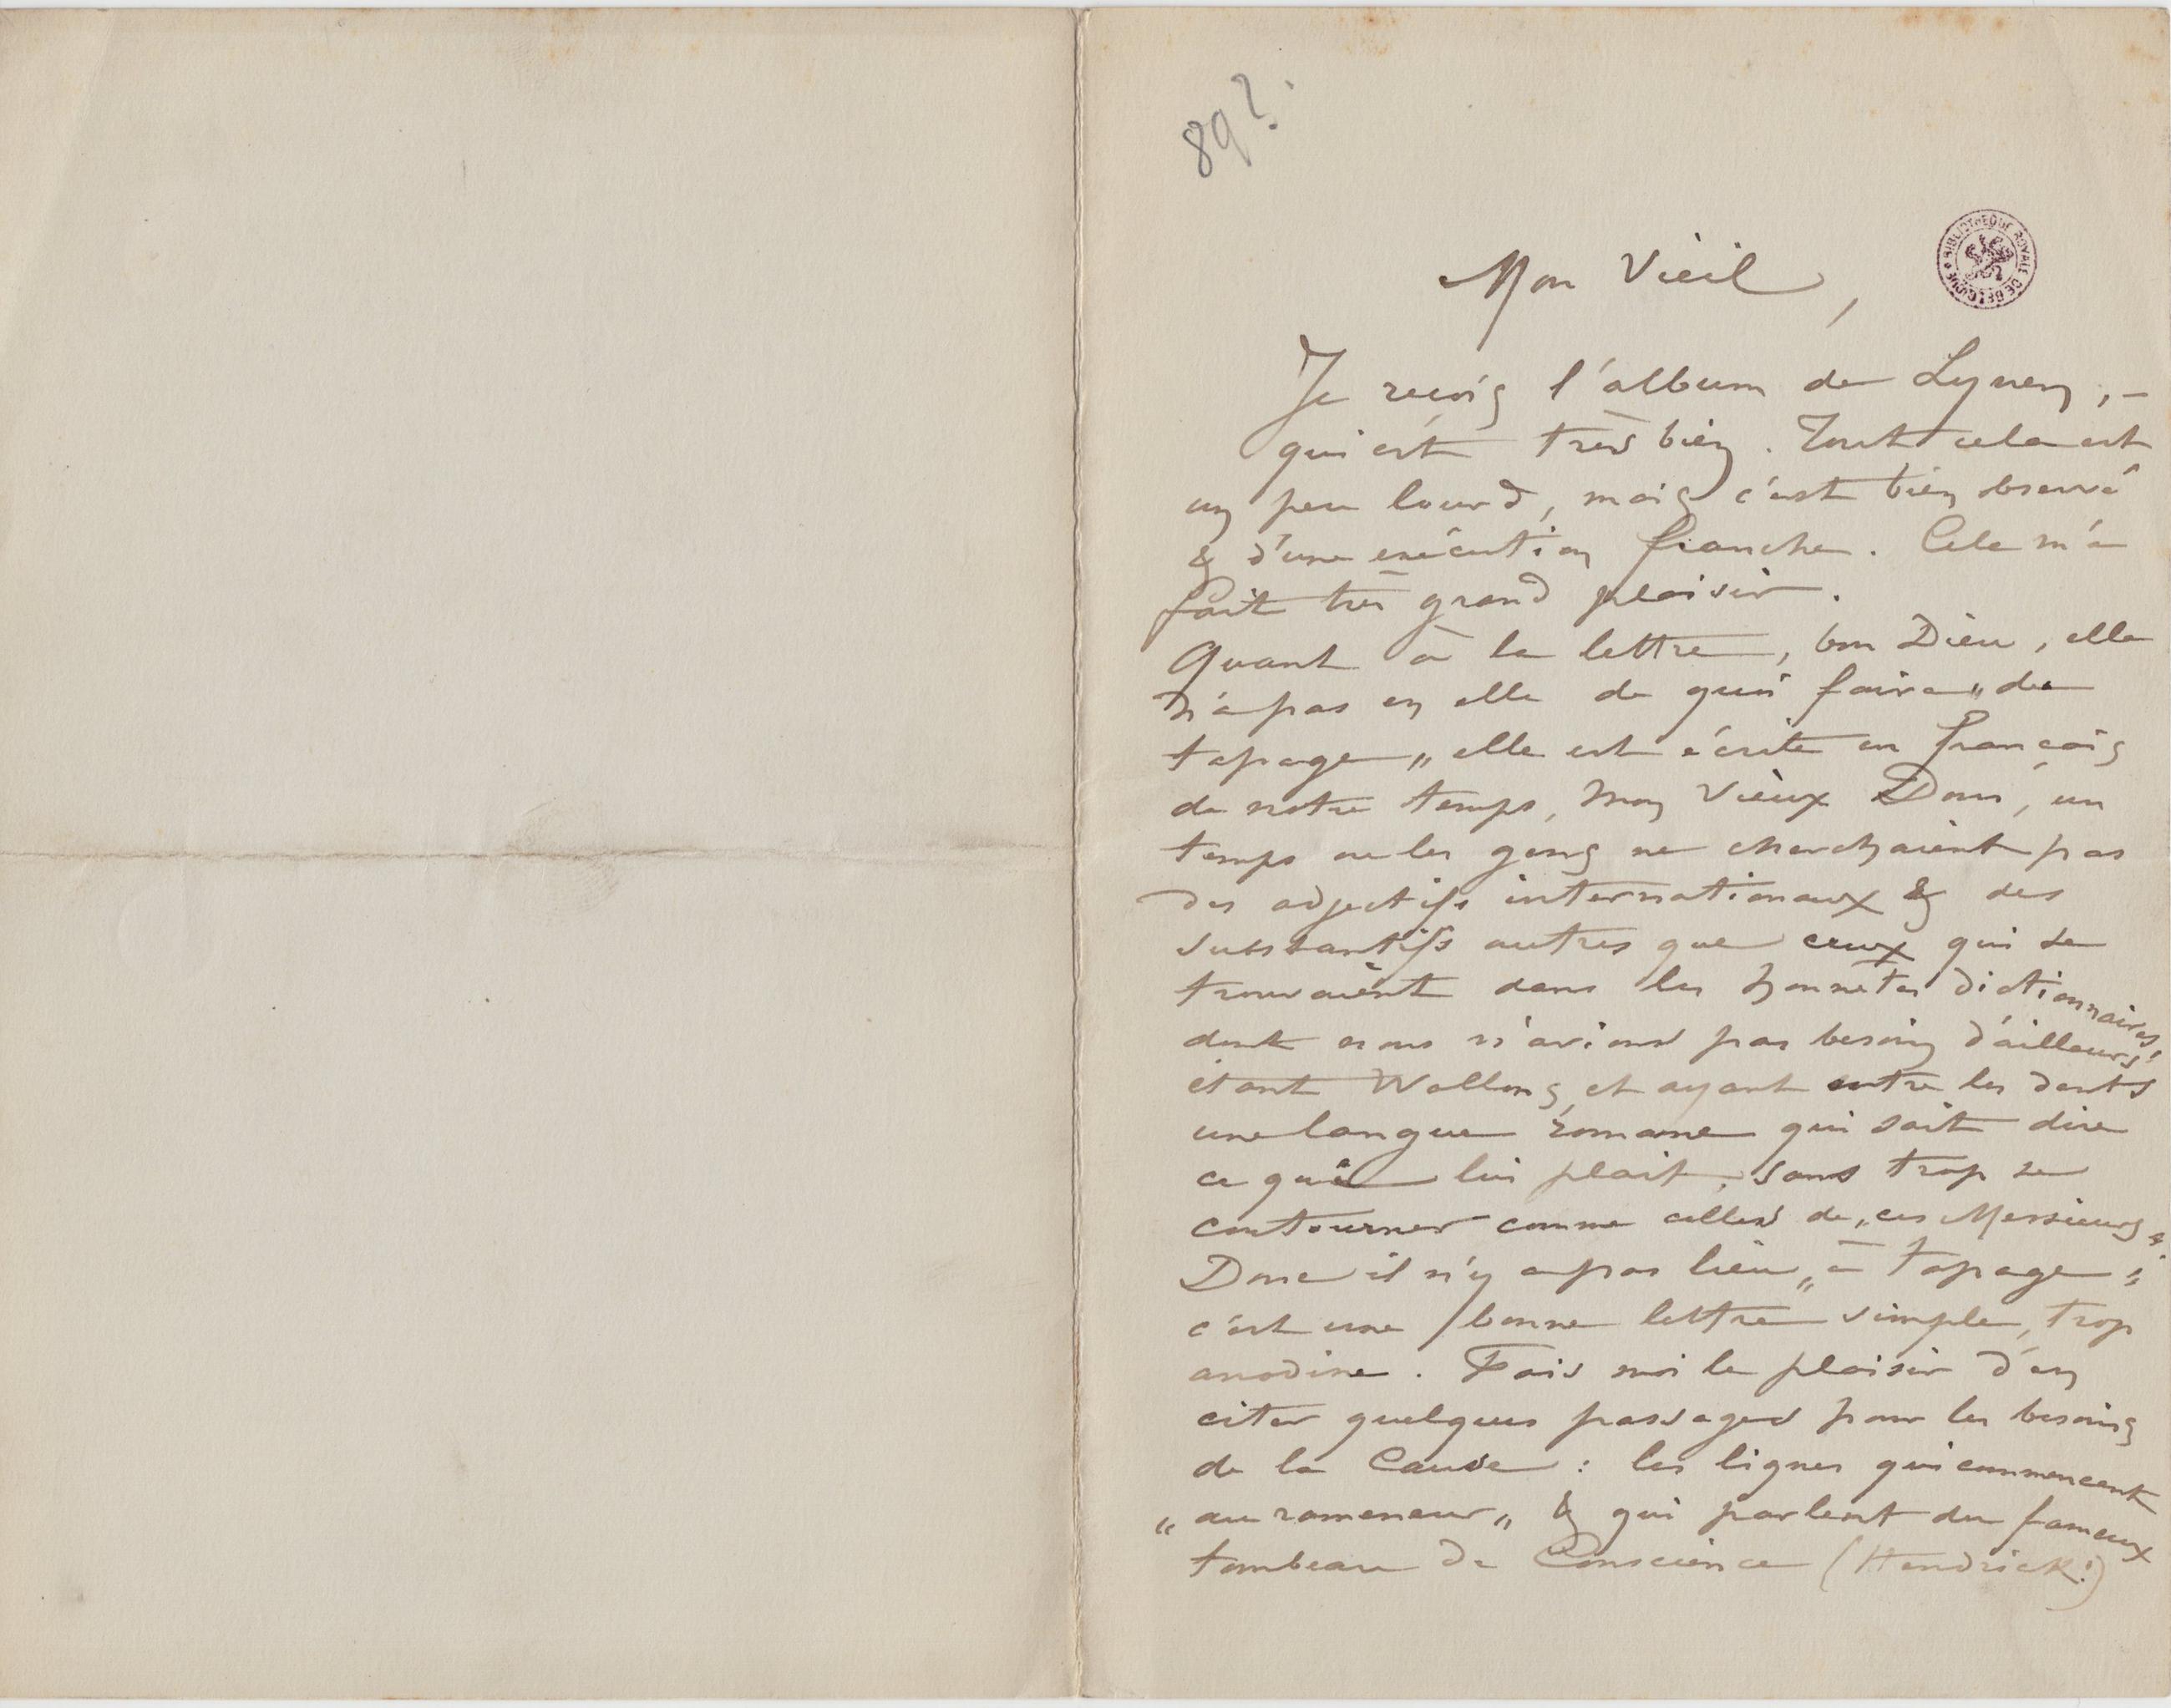 89?.
BIBLIOTHÈQUE ROYALE DE BELGIQUE
Mon Vieil,
Je reçois l'album de Lynen, –
qui est très bien. Tout cela est
un peu lourd, mais c'est bien observé
& d'une exécution franche. Cela m'a
fait très grand plaisir.
Quant à la lettre, bon Dieu, elle
n'a pas en elle de quoi faire „du
tapage„ elle est écrite en français
de notre temps, Mon Vieux Dom, un
temps où les gens ne cherchaient pas
des adjectifs internationaux & des
substantifs autres que ceux qui se
trouvaient dans les honnêtes dictionnaires,
dont nous n'avions pas besoin d'ailleurs,
étant Wallons, et ayant entre les dents
une langue romane qui sait dire
ce qui lui plait, sans trop se
contourner comme celles de „ces Messieurs„.
Donc il n'y a pas lieu „à tapage„;
c'est une bonne lettre simple, trop
anodine. Fais moi le plaisir d'en
citer quelques passages pour les besoins
de la Cause : les lignes qui commencent
„au rameneur„ & qui parlent du fameux
tombeau de Conscience (Hendrick!)